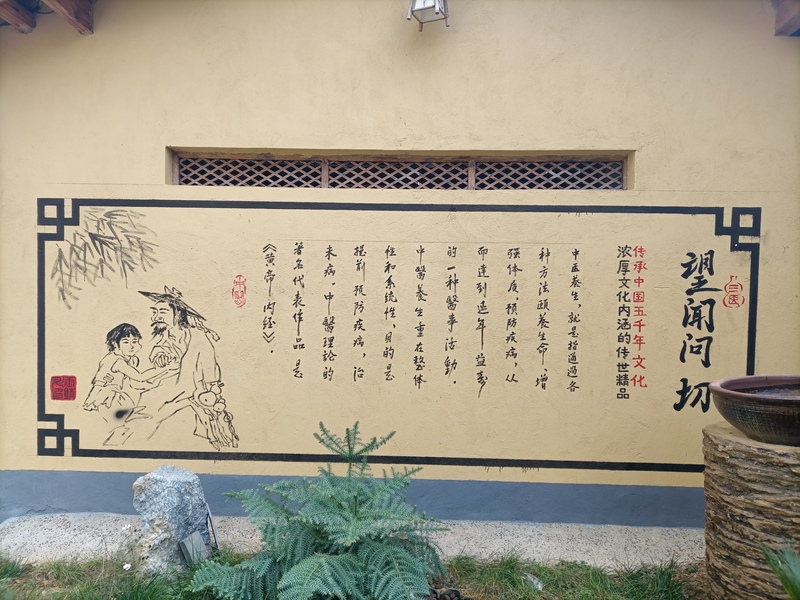 望闻问切
传承中国五千年文化
浓厚文化内涵的传世精品
中医养生,就是指通過各
种方法颐養生命、增
强体质、预防疾病,从
而達到延年益寿
的一种醫事活動。
中醫養生重在整体
性和系统性,目的是
提前预防疾病,治
未病。中醫理論的
著名代表作品是
《黄帝内经》。